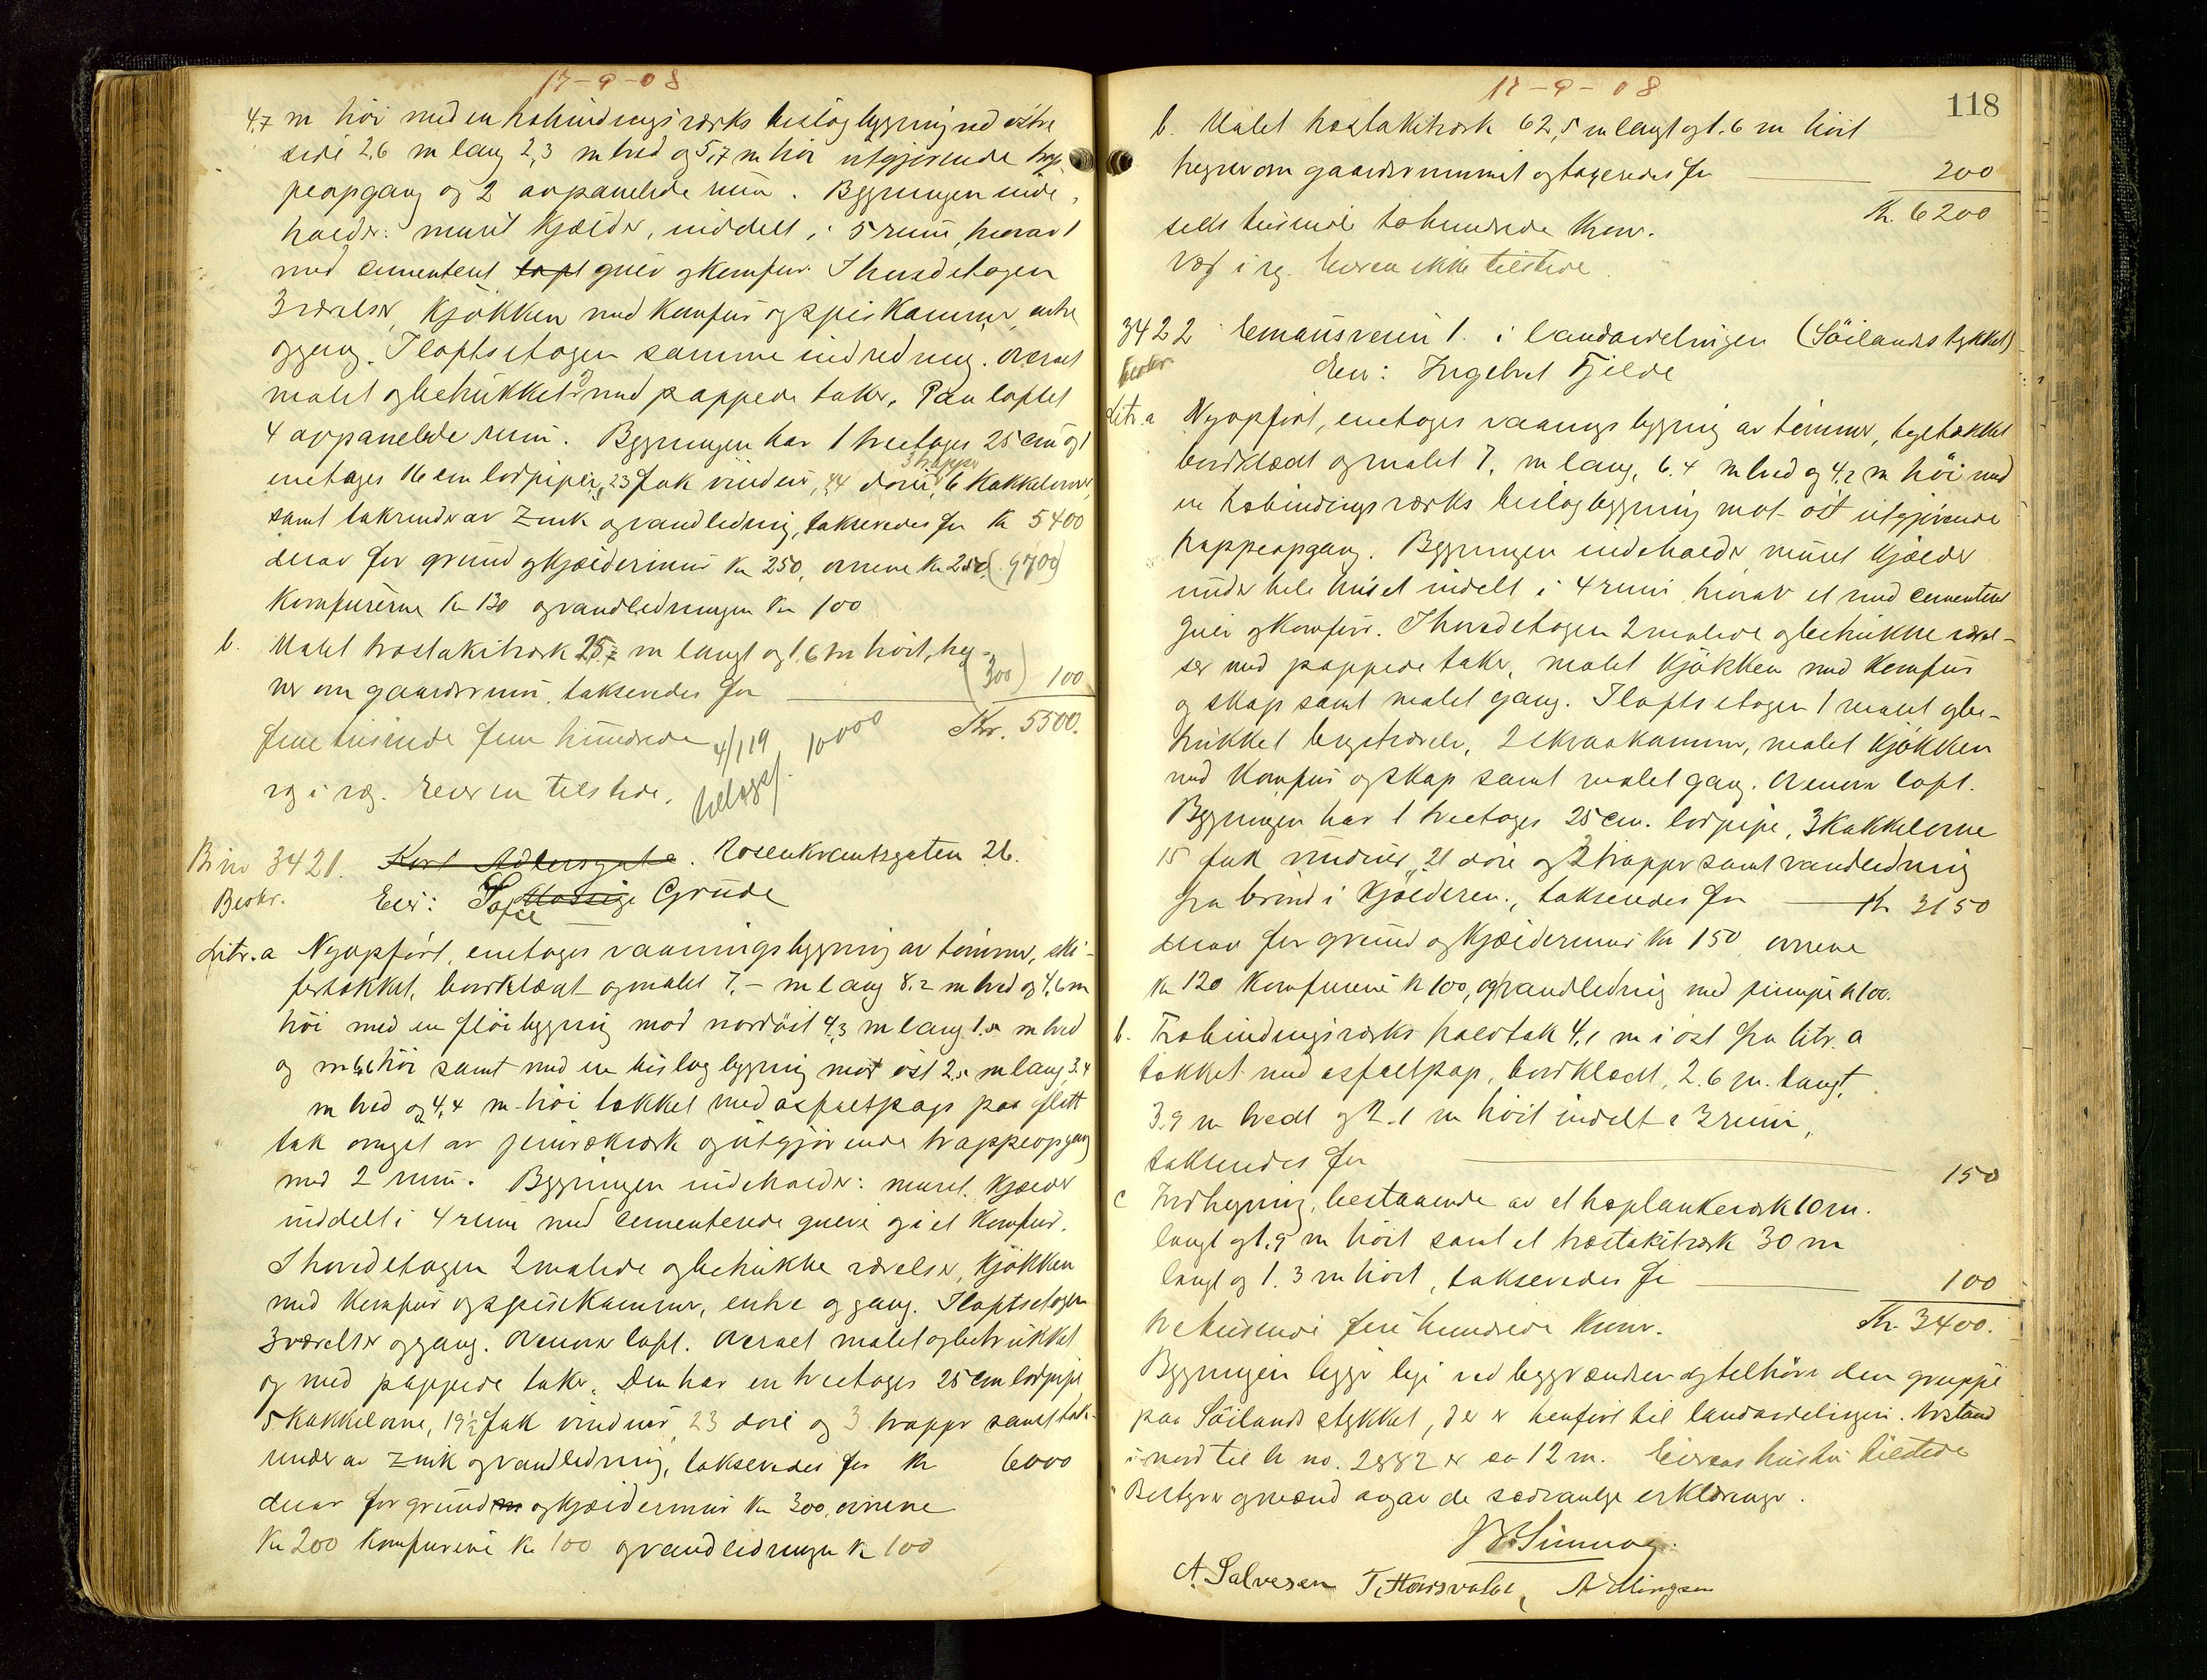 17-9-08
4,7 m höi med en trebindingsværks bislagbygning ved østre
side 2,6 m lang 2,3 m bred og 5,7 m höi utgjörende trap
peopgang og 2 avpanelede rum. Bygningen inde,
holder: muret kjælder, inddelt i 5 rum, hvorav 1
med cementert gulv og komfur. I hovedetagen
3 værelser, kjökken med komfur og spiskammer, entre
og gang. I loftsetagen samme indredning. Overalt
malet og betrukket med pappede taker. Paa loftet
4 avpanelede rum. Bygningen har 1 treetages 25 cm og 1
enetages 16 cm lodpiper, 23 fak vinduer, 24 döre, 3 trapper 6 kakkelovne,
samt takrender av zink og vandledning, takseredes for Kr 5400
derav for grund og kjældermur Kr 250, ovnene Kr 250, (9700)
komfurerne Kr 130 og vandledningen Kr 100
b. Malet træstakitværk 25,7 m langt og 1,6 m höit, heg-
ner om gaardsrum, takseredes for (300) 100
Kr. 5500.
fem tusinde fem hundrede 4/119 10000
vg i rg. Eieren tilstede.
B no 3421. Kort Adlersgate. Rosenkrantsgaten 26.
Beskr. Eier: Tofte Grude
Litr. a Nyopfört, enetages vaaningsbygning av tömmer, ski-
fertækket, bordklædt og malet 7,- m lang 8,2 m bred og 4,6 m
höi med en flöibygning mod nordöst 4,3 m lang 1,5 m bred
og m 4,6 höi samt med en bislagbygning mot öst 2,5 m lang, 3.4
m bred og 4,4 m höi tækket med asfaltpap paa flatt
tak omgit av rækværk og utgjörende trappeopgang
med 2 rum. Bygningen indeholder: muret kjælder
inddelt i 4 rum med cementerede gulve og i et komfur.
I hovedetagen 2 malede og betrukne værelser, kjökken
med komfur og spisekammer, entre og gang. I loftsetagen
3 værelser og gang. Ovenover loft. Overalt malet og betrukket
og med pappede taker. Den har en treetages 25 cm lodpipe
5 kakkelovne, 19½ fak vinduer, 23 döre og 3 trapper samt tak-
render av zink og vandledning, takseredes for Kr 6000
derav for grund og kjældermur Kr 300, ovnene
Kr 200 komfurene Kr 100 og vandledningen Kr 100
17-9-08
118
b. Malet træstakitværk 62,5 m langt og 1.6 m höit
hegner om gaardsrummet og takseredes for 200
Kr. 6200
seks tusinde tohundrede kroner.
vg i rg. Eieren ikke tilstede.
3422 Emausveien 1. i landavdelingen (Söilandstykket)
Beskr. Eier: Ingebret Fjelde
Litr. a Nyopfört, enetages vaaningsbygning av tömmer, tegltækket
bordklædt og malet 7, m lang, 6.4 m bred og 4,2 m höi med
en trebindingsværks bislagbygning mot öst utgjörende
trappeopgang. Bygningen indeholder muret kjælder
under hele huset indelt i 4 rum hvorav et med cementeret
gulv og komfur. I hovedetagen 2 malede og betrukne værel-
ser med pappede taker, malet kjökken med komfur
og skap samt malet gang. I loftsetagen 1 malet og be-
trukket kvistværelse, 2 skraakammer, malet kjökken
med komfur og skap samt malet gang. Ovenover loft.
Bygningen har 1 treetages 25 cm. lodpipe, 3 kakkelovne
15 fak vinduer, 21 döre og 2 trapper samt vandledning
fra brönd i kjælderen, takseredes for Kr 3150
derav for grund og kjældermur Kr 150 ovnene
Kr 120 komfurene Kr 100, og vandledning med pumpe Kr 100.
b. Trebindingsværks halvtak 4,1 m i öst fra litr. a
tækket med asfaltpap, bordklædt, 2.6 m. langt,
3.9 m bredt og 2.1 m höit indelt i 3 rum,
takseredes for 150
c Indhegning, bestaaende av et træplankeværk 10 m.
langt og 1.9 m höit samt et træstakitværk 30 m
langt og 1.3 m höit, takseredes for 100
Kr. 3400.
tretusinde fire hundrede kroner.
Bygningen ligger like ved byggrændsen og tilhörer den gruppe
paa Söilands stykket, der er henfört til landavdelingen. Avstand
i nord til b no. 2882 er ca 12 m. Eierens hustru tilstede
Bestyrer og mænd avgav de sedvanlige erklæringer.
A. Salvesen